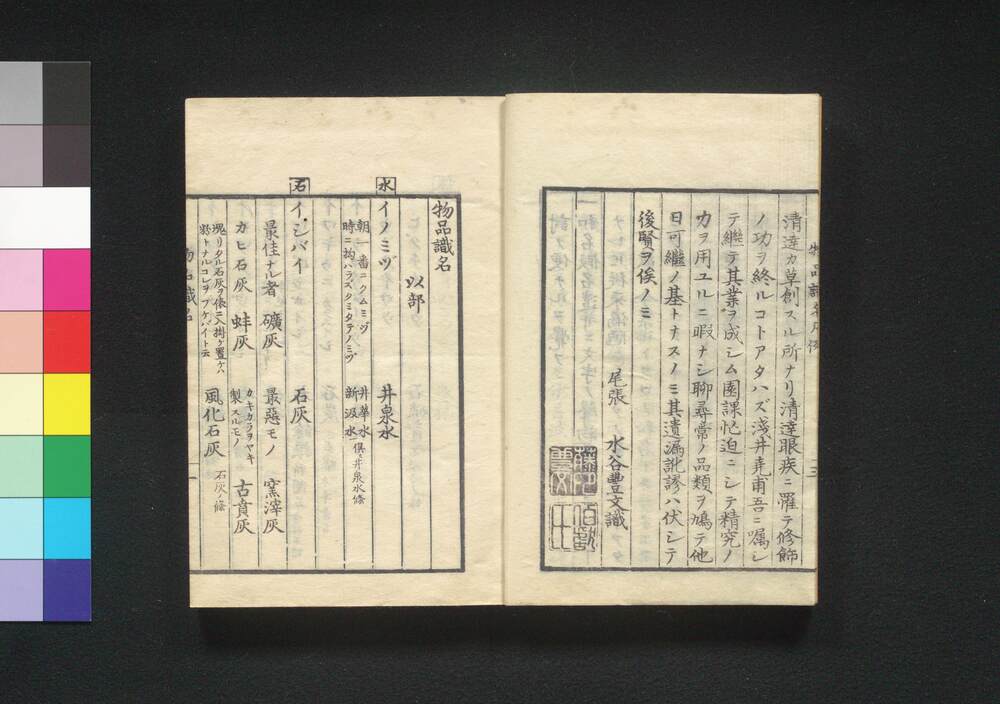 清達カ草創スル所ナリ清達眼疾ニ罹テ修飾
ノ功ヲ終ルコトアタハズ淺井堯甫吾ニ嘱シ
テ継テ其業ヲ成シム園課怱迫ニシテ精究ノ
力ヲ用ユルニ暇ナシ聊尋常ノ品類ヲ鳩テ他
日可継ノ基トナスノミ其遺漏訛謬ハ伏シテ
後賢ヲ俟ノミ
尾張 水谷豐文識
物品識名
以部
水
イノミヅ 井泉水
朝一番ニクムミヅ 井華水
時ニ拘ハラズクミタテノミヅ 新汲水
倶ニ井泉水ノ條
石
イシバイ 石灰
最佳ナル者 礦灰 最惡モノ 窯滓灰
カヒ石灰 蚌灰 カキカラヲヤキ
製スルモノ 古賁灰
塊リタル石灰ヲ俵ニ入掛ケ置ケハ
粉トナルコレヲフケバイト云 風化石灰 石灰ノ條